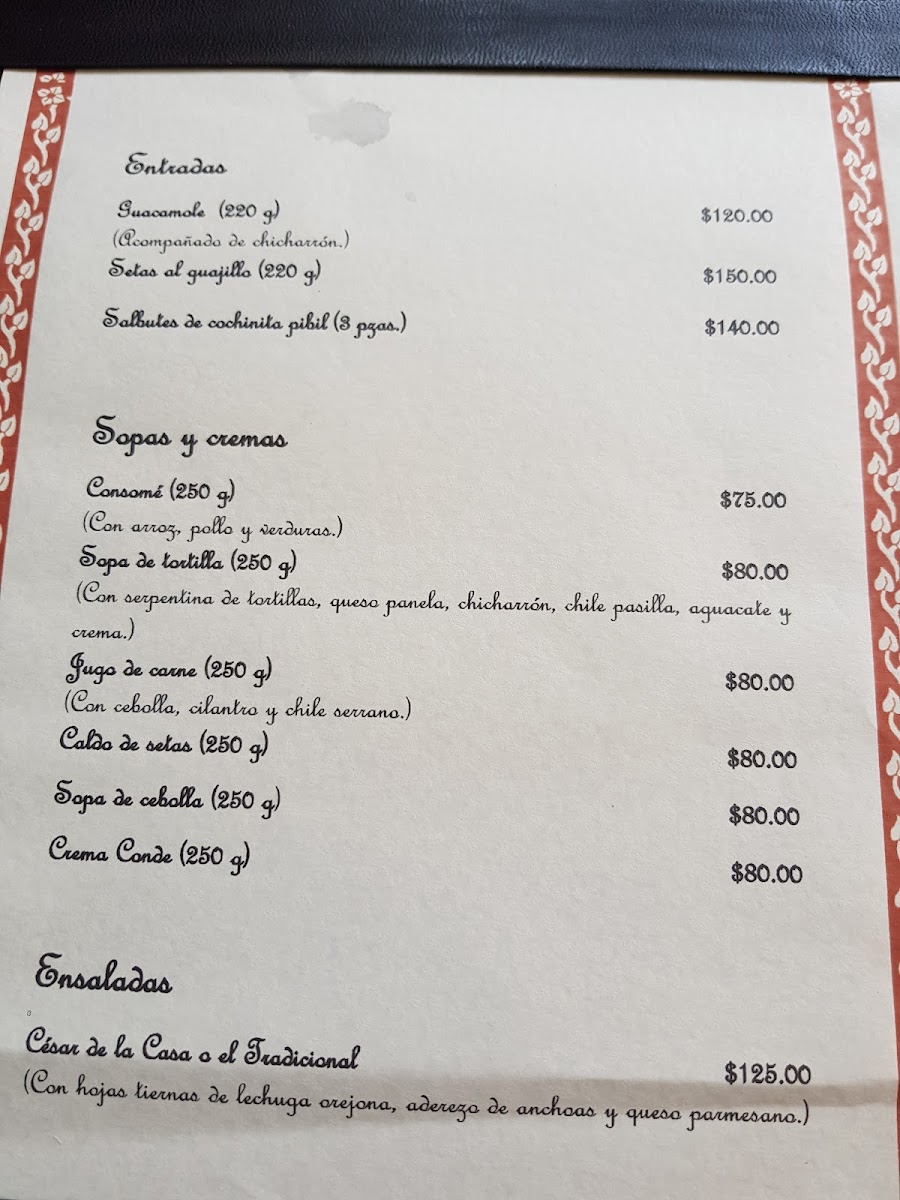 Entradas
Guacamole (220 g) $120.00
(Acompañado de chicharrón.)
Setas al guajillo (220 g) $150.00
Salbutes de cochinita pibil (3 pzas.) $140.00
Sopas y cremas
Consomé (250 g) $75.00
(Con arroz, pollo y verduras.)
Sopa de tortilla (250 g) $80.00
(Con serpentina de tortillas, queso panela, chicharrón, chile pasilla, aguacate y
crema.)
Jugo de carne (250 g) $80.00
(Con cebolla, cilantro y chile serrano.)
Caldo de setas (250 g) $80.00
Sopa de cebolla (250 g) $80.00
Crema Conde (250 g) $80.00
Ensaladas
César de la Casa o el Tradicional $125.00
(Con hojas tiernas de lechuga orejona, aderezo de anchoas y queso parmesano.)